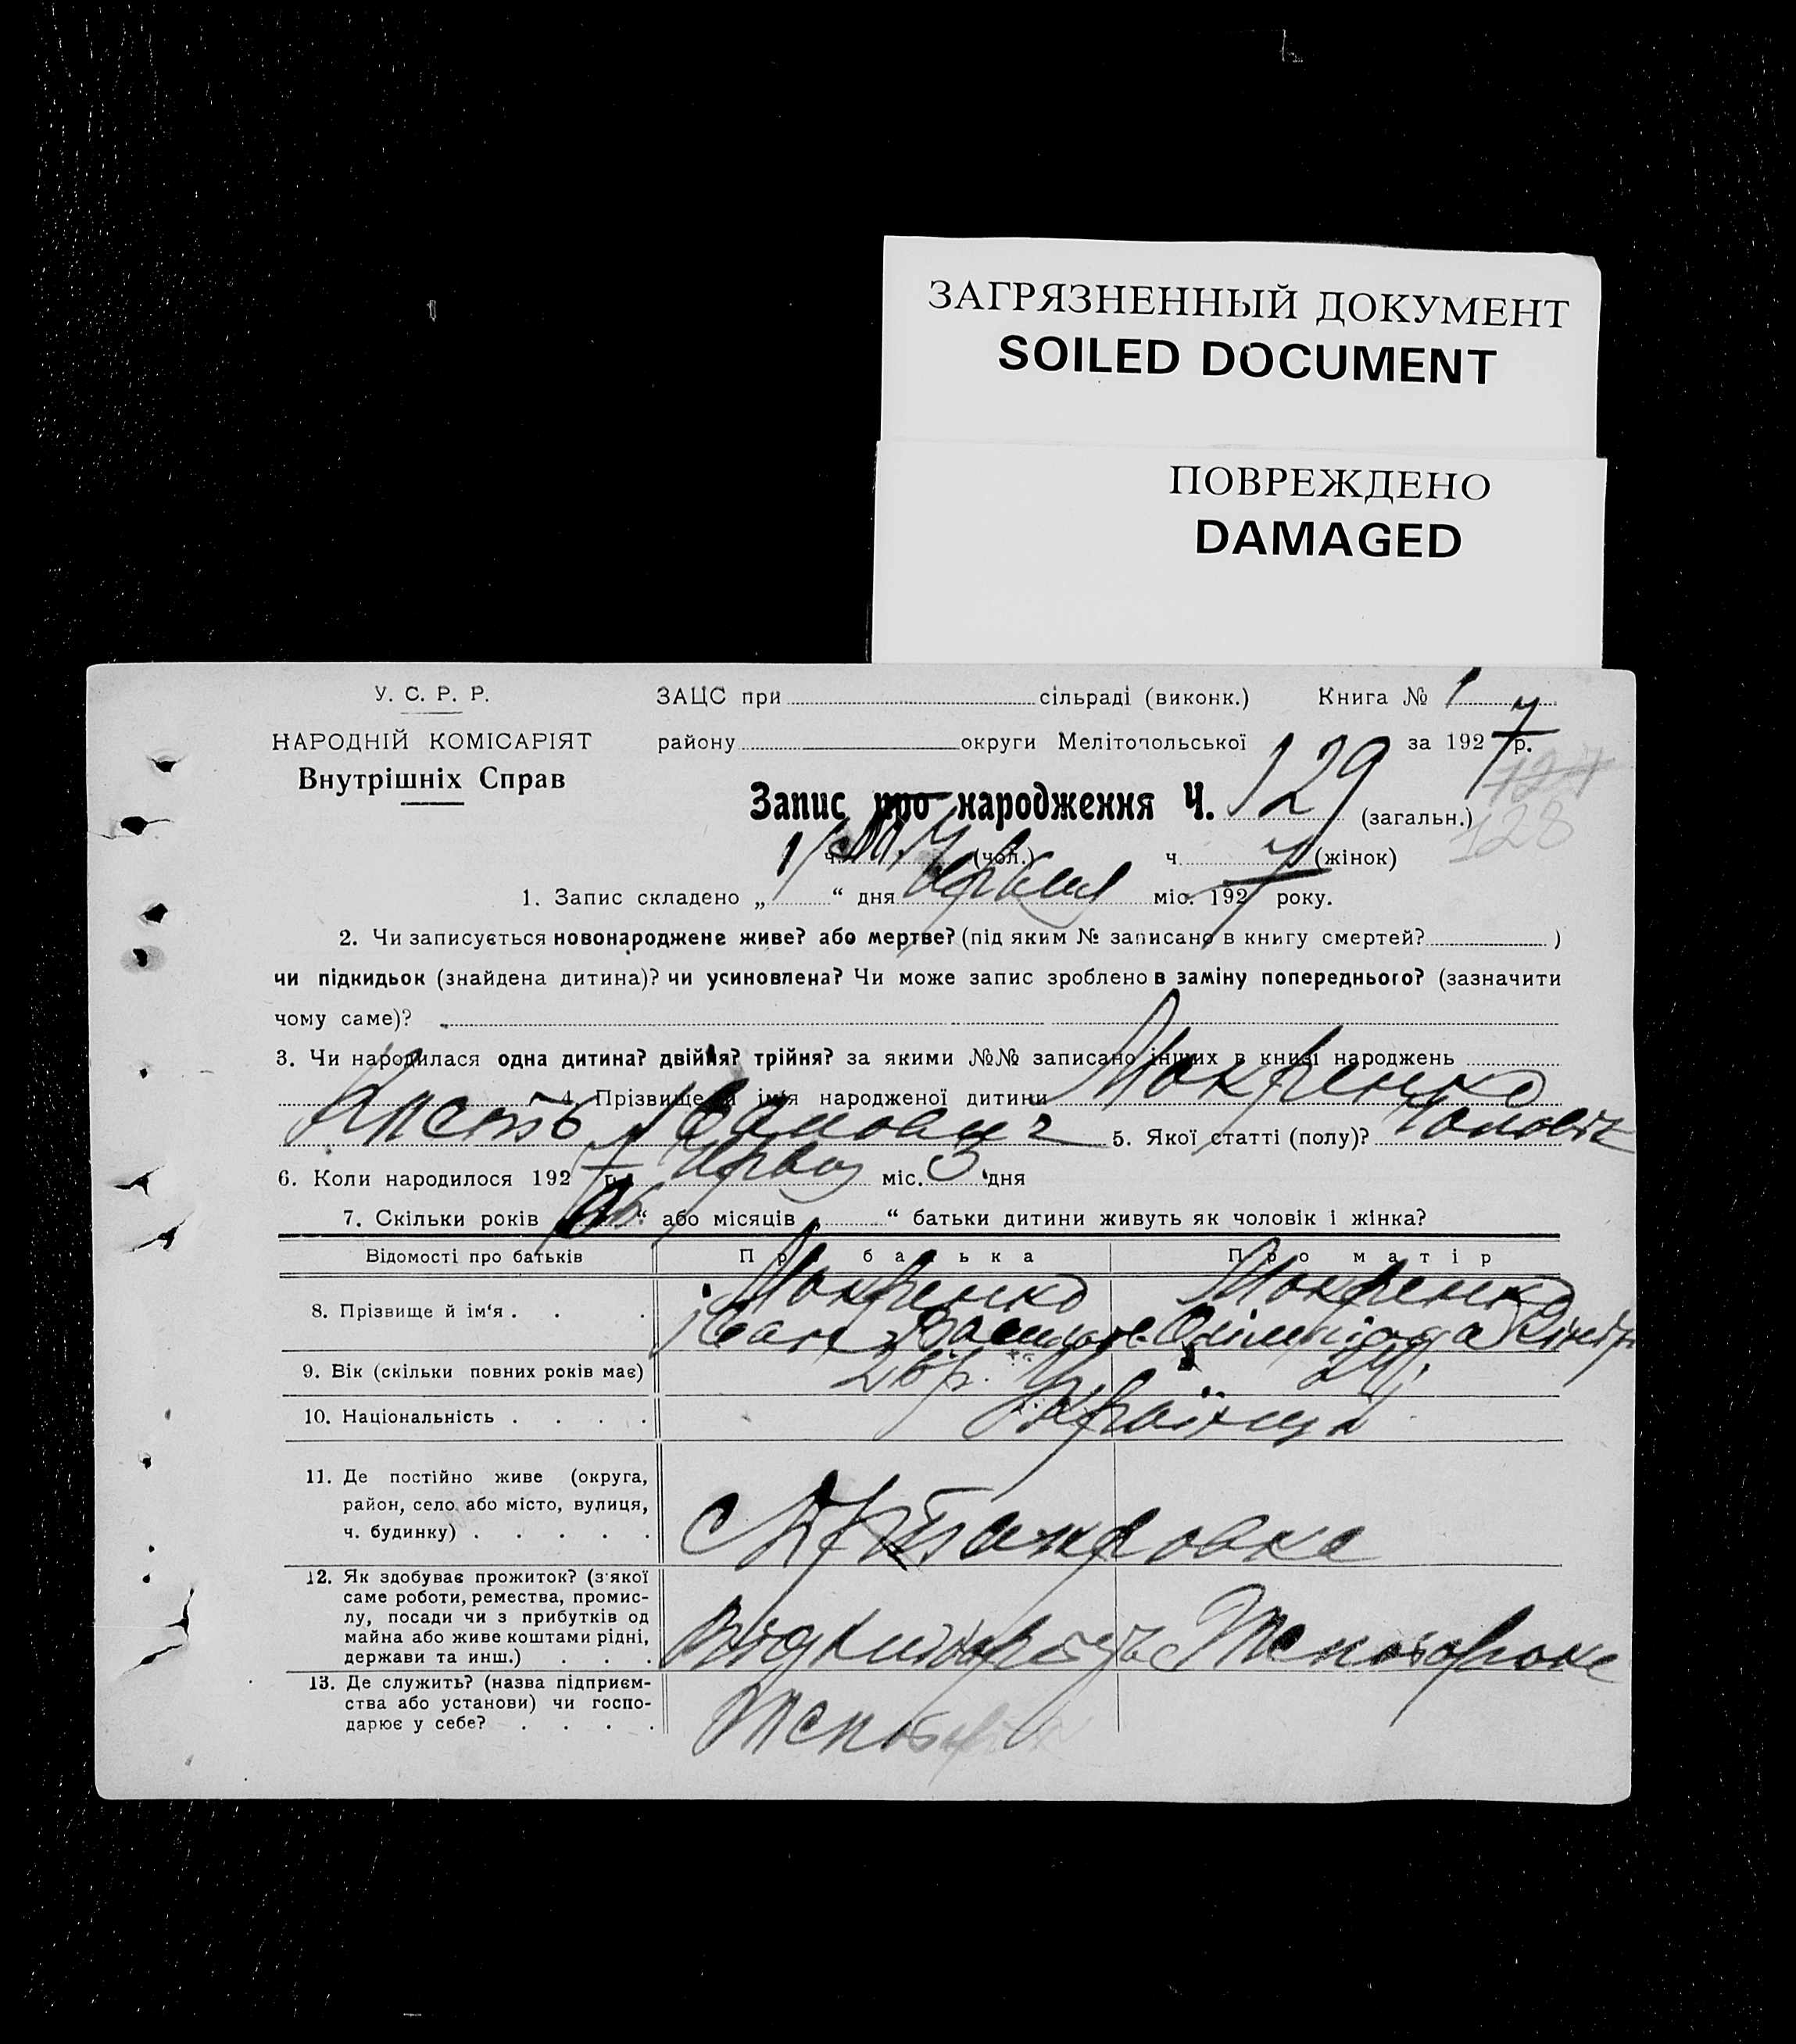 ЗАГРЯЗНЕННЫЙ ДОКУМЕНТ
SOILED DOCUMENT
ПОВРЕЖДЕНО
DAMAGED
У. С. Р. Р.
НАРОДНІЙ КОМІСАРІЯТ
Внутрішніх Справ
ЗАЦС при сільраді (виконк.) Книга № 1
району округи Мелітопольської за 1927 р.
127
Запис про народження Ч. 129 (загальн.)
128
ч. (чол.) ч. (жінок)
1. Запис складено „ “ дня міс. 1927 року.
2. Чи записується новонароджене живе? або мертве? (під яким № записано в книгу смертей? )
чи підкидьок (знайдена дитина)? чи усиновлена? Чи може запис зроблено в заміну попереднього? (зазначити
чому саме)?
3. Чи народилася одна дитина? двійня? трійня? за якими №№ записано інших в книзі народжень
4. Прізвище й ім'я народженої дитини Мокренко
Іванович 5. Якої статті (полу)? Чоловіч
6. Коли народилося 1927 р. міс. 3 дня
7. Скільки років “ або місяців “ батьки дитини живуть як чоловік і жінка?
Відомості про батьків Про батька Про матір
8. Прізвище й ім'я . . . Мокренко Мокренко
Іван
9. Вік (скільки повних років має) 26 р. 24
10. Національність . . . . Українці
11. Де постійно живе (округа,
район, село або місто, вулиця,
ч. будинку) . . . . .
12. Як здобуває прожиток? (з'якої
саме роботи, ремества, промис-
лу, посади чи з прибутків од
майна або живе коштами рідні,
держави та инш.) . . .
13. Де служить? (назва підприєм-
ства або установи) чи госпо-
дарює у себе? . . . .